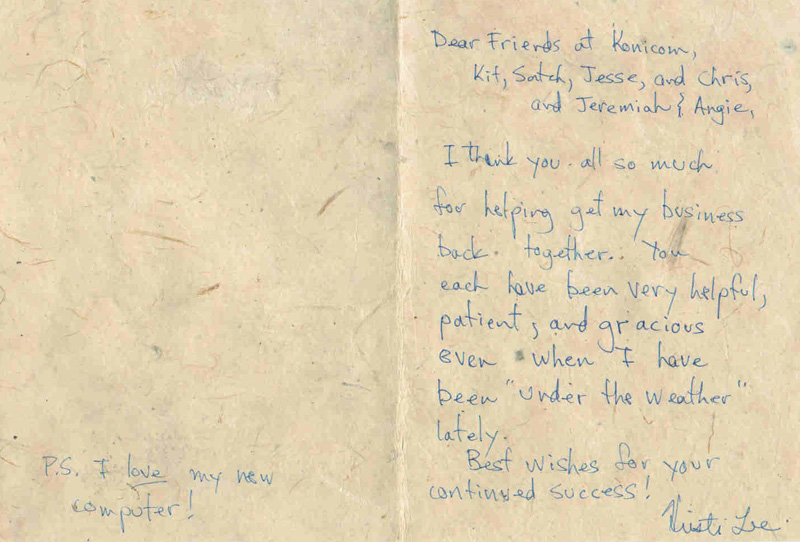 Dear Friends at Konicom,
Kit, Satch, Jesse, and Chris,
and Jeremiah & Angie,
I thank you all so much
for helping get my business
back together. You
each have been very helpful,
patient, and gracious
even when I have
been "under the weather"
lately.
Best wishes for your
continued success!
Kristi Lee
P.S. I love my new
computer!